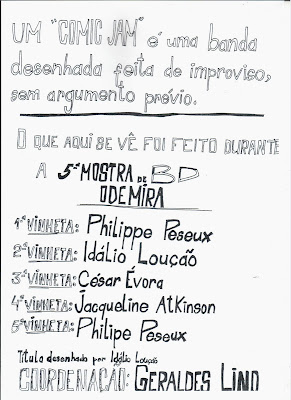 UM "COMIC JAM" é uma banda
desenhada feita de improviso,
sem argumento prévio.
O QUE AQUI SE VÊ FOI FEITO DURANTE
A 5ª MOSTRA DE BD
ODEMIRA
1ª VINHETA: Philippe Peseux
2ª VINHETA: Idálio Loução
3ª VINHETA: César Évora
4ª VINHETA: Jacqueline Atkinson
5ª VINHETA: Philipe Peseux
Título desenhado por Idálio Loução
COORDENAÇÃO: GERALDES LINO